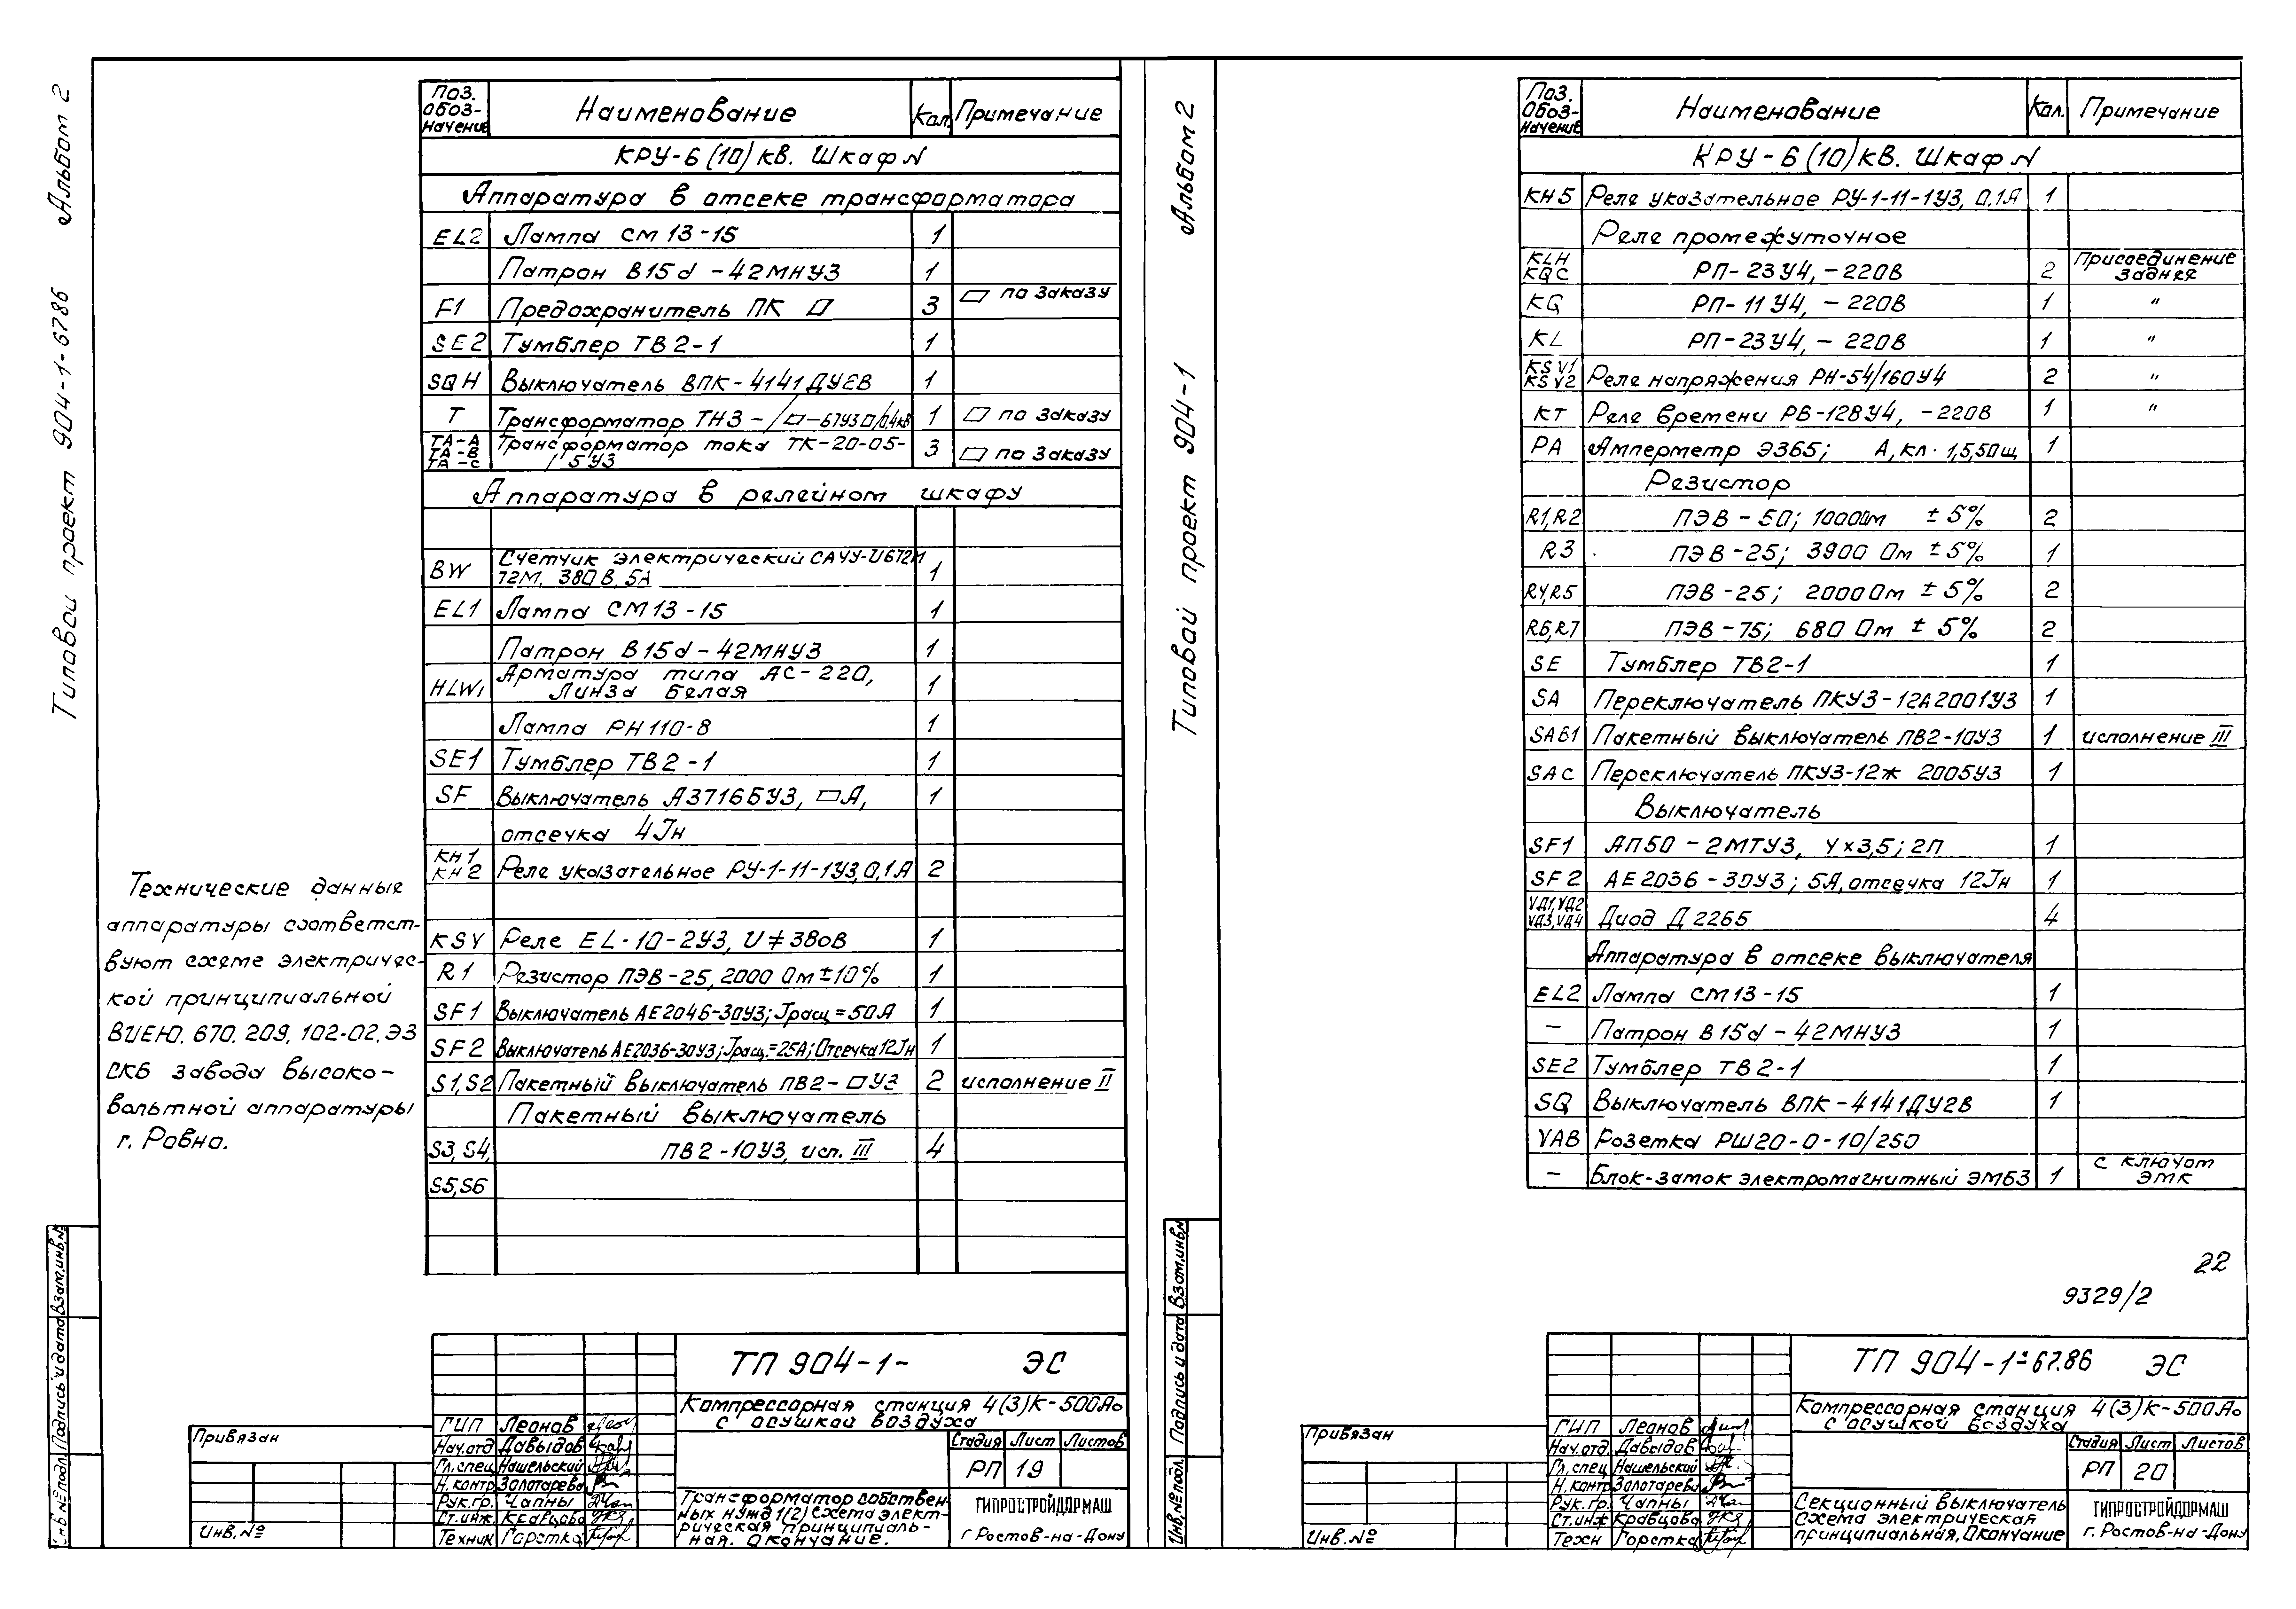 Типовой проект 904-1-6786 Альбом 2
Поз. обоз-начение Наименование Кол. Примечание
КРУ-6(10)кв. Шкаф N
Аппаратура в отсеке трансформатора
EL2 Лампа СМ 13-15 1
Патрон В15d-42МНУ3 1
F1 Предохранитель ПК ▱ 3 ▱ по заказу
SE2 Тумблер ТВ2-1 1
SQH Выключатель ВПК-4141ДУ2В 1
Т Трансформатор ТНЗ-/▱-67У3▱/0,4кв 1 ▱ по заказу
ТА-А ТА-В ТА-С Трансформатор тока ТК-20-05- 3 ▱ по заказу
/5У3
Аппаратура в релейном шкафу
BW Счетчик электрический САЧУ-U672М 1
72М, 380В, 5А
EL1 Лампа СМ13-15 1
Патрон В15d-42МНУ3 1
HLW1 Арматура типа АС-220, 1
Линза белая
Лампа РН110-8 1
SE1 Тумблер ТВ2-1 1
SF Выключатель А3716БУ3, ▱А, 1
отсечка 4Jн
КН1 КН2 Реле указательное РУ-1-11-1У3, 0,1А 2
KSV Реле EL-10-2У3, U≠380В 1
R1 Резистор ПЭВ-25, 2000 Ом±10% 1
SF1 Выключатель АЕ2046-30У3; Jрасц=50А 1
SF2 Выключатель АЕ2036-30У3; Jрасц.=25А; Отсечка 12Jн 1
S1,S2 Пакетный выключатель ПВ2-▱У3 2 исполнение II
Пакетный выключатель
S3,S4, ПВ2-10У3, исп. III 4
S5,S6
Технические данные
аппаратуры соответст-
вуют схеме электричес-
кой принципиальной
ВИЕЮ. 670. 209, 102-02.Э3
СКБ завода высоко-
вольтной аппаратуры
г. Ровно.
Инв.№подл. Подпись и дата Взам.инв.№
Привязан
Инв.№
ГИП Леонов
Нач.отд Давыдов
Гл.спец Нашельский
Н.контр Золотарева
Рук.гр. Чапны
Ст.инж. Кравцова
Техник Горстка
ТП 904-1- ЭС
Компрессорная станция 4(3)К-500Ао
с осушкой воздуха
Стадия Лист Листов
РП 19
Трансформатор собствен-
ных нужд 1(2) схема элект-
рическая принципиаль-
ная. Окончание.
ГИПРОСТРОЙДОРМАШ
г Ростов-на-Дону
Типовой проект 904-1 Альбом 2
Поз. Обоз-начение Наименование Кол. Примечание
КРУ-6(10)кв. Шкаф N
КН5 Реле указательное РУ-1-11-1У3, 0,1А 1
Реле промежуточное
KLH KQC РП-23У4, -220В 2 Присоединение заднее
KQ РП-11У4, -220В 1 "
KL РП-23У4, -220В 1 "
KSV1 KSV2 Реле напряжения РН-54/160У4 2 "
КТ Реле времени РВ-128У4, -220В 1 "
РА Амперметр Э365; А, кл. 1,5,50щ 1
Резистор
R1,R2 ПЭВ-50; 1000Ом ±5% 2
R3 ПЭВ-25; 3900 Ом ±5% 1
R4,R5 ПЭВ-25; 2000Ом ±5% 2
R6,R7 ПЭВ-75; 680 Ом ±5% 2
SE Тумблер ТВ2-1 1
SA Переключатель ПКУ3-12А2001У3 1
SAB1 Пакетный выключатель ПВ2-10У3 1 исполнение III
SAC Переключатель ПКУ3-12ж 2005У3 1
Выключатель
SF1 АП50-2МТУ3, Ух3,5; 2П 1
SF2 АЕ2036-30У3; 5А, отсечка 12Jн 1
VД1,VД2 VД3,VД4 Диод Д226Б 4
Аппаратура в отсеке выключателя
EL2 Лампа СМ13-15 1
– Патрон В15d-42МНУ3 1
SE2 Тумблер ТВ2-1 1
SQ Выключатель ВПК-4141ДУ2В 1
YAB Розетка РШ20-0-10/250
– Блок-замок электромагнитный ЭМБЗ 1 с ключом ЭМК
22
9329/2
Инв.№подл. Подпись и дата Взам.инв.№
Привязан
Инв.№
ГИП Леонов
Нач.отд. Давыдов
Гл.спец Нашельский
Н.контр Золотарева
Рук.гр. Чапны
Ст.инж Кравцова
Техн Горстка
ТП 904-1-67.86 ЭС
Компрессорная станция 4(3)К-500Ао
с осушкой воздуха
Стадия Лист Листов
РП 20
Секционный выключатель
Схема электрическая
принципиальная, Окончание
ГИПРОСТРОЙДОРМАШ
г. Ростов-на-Дону